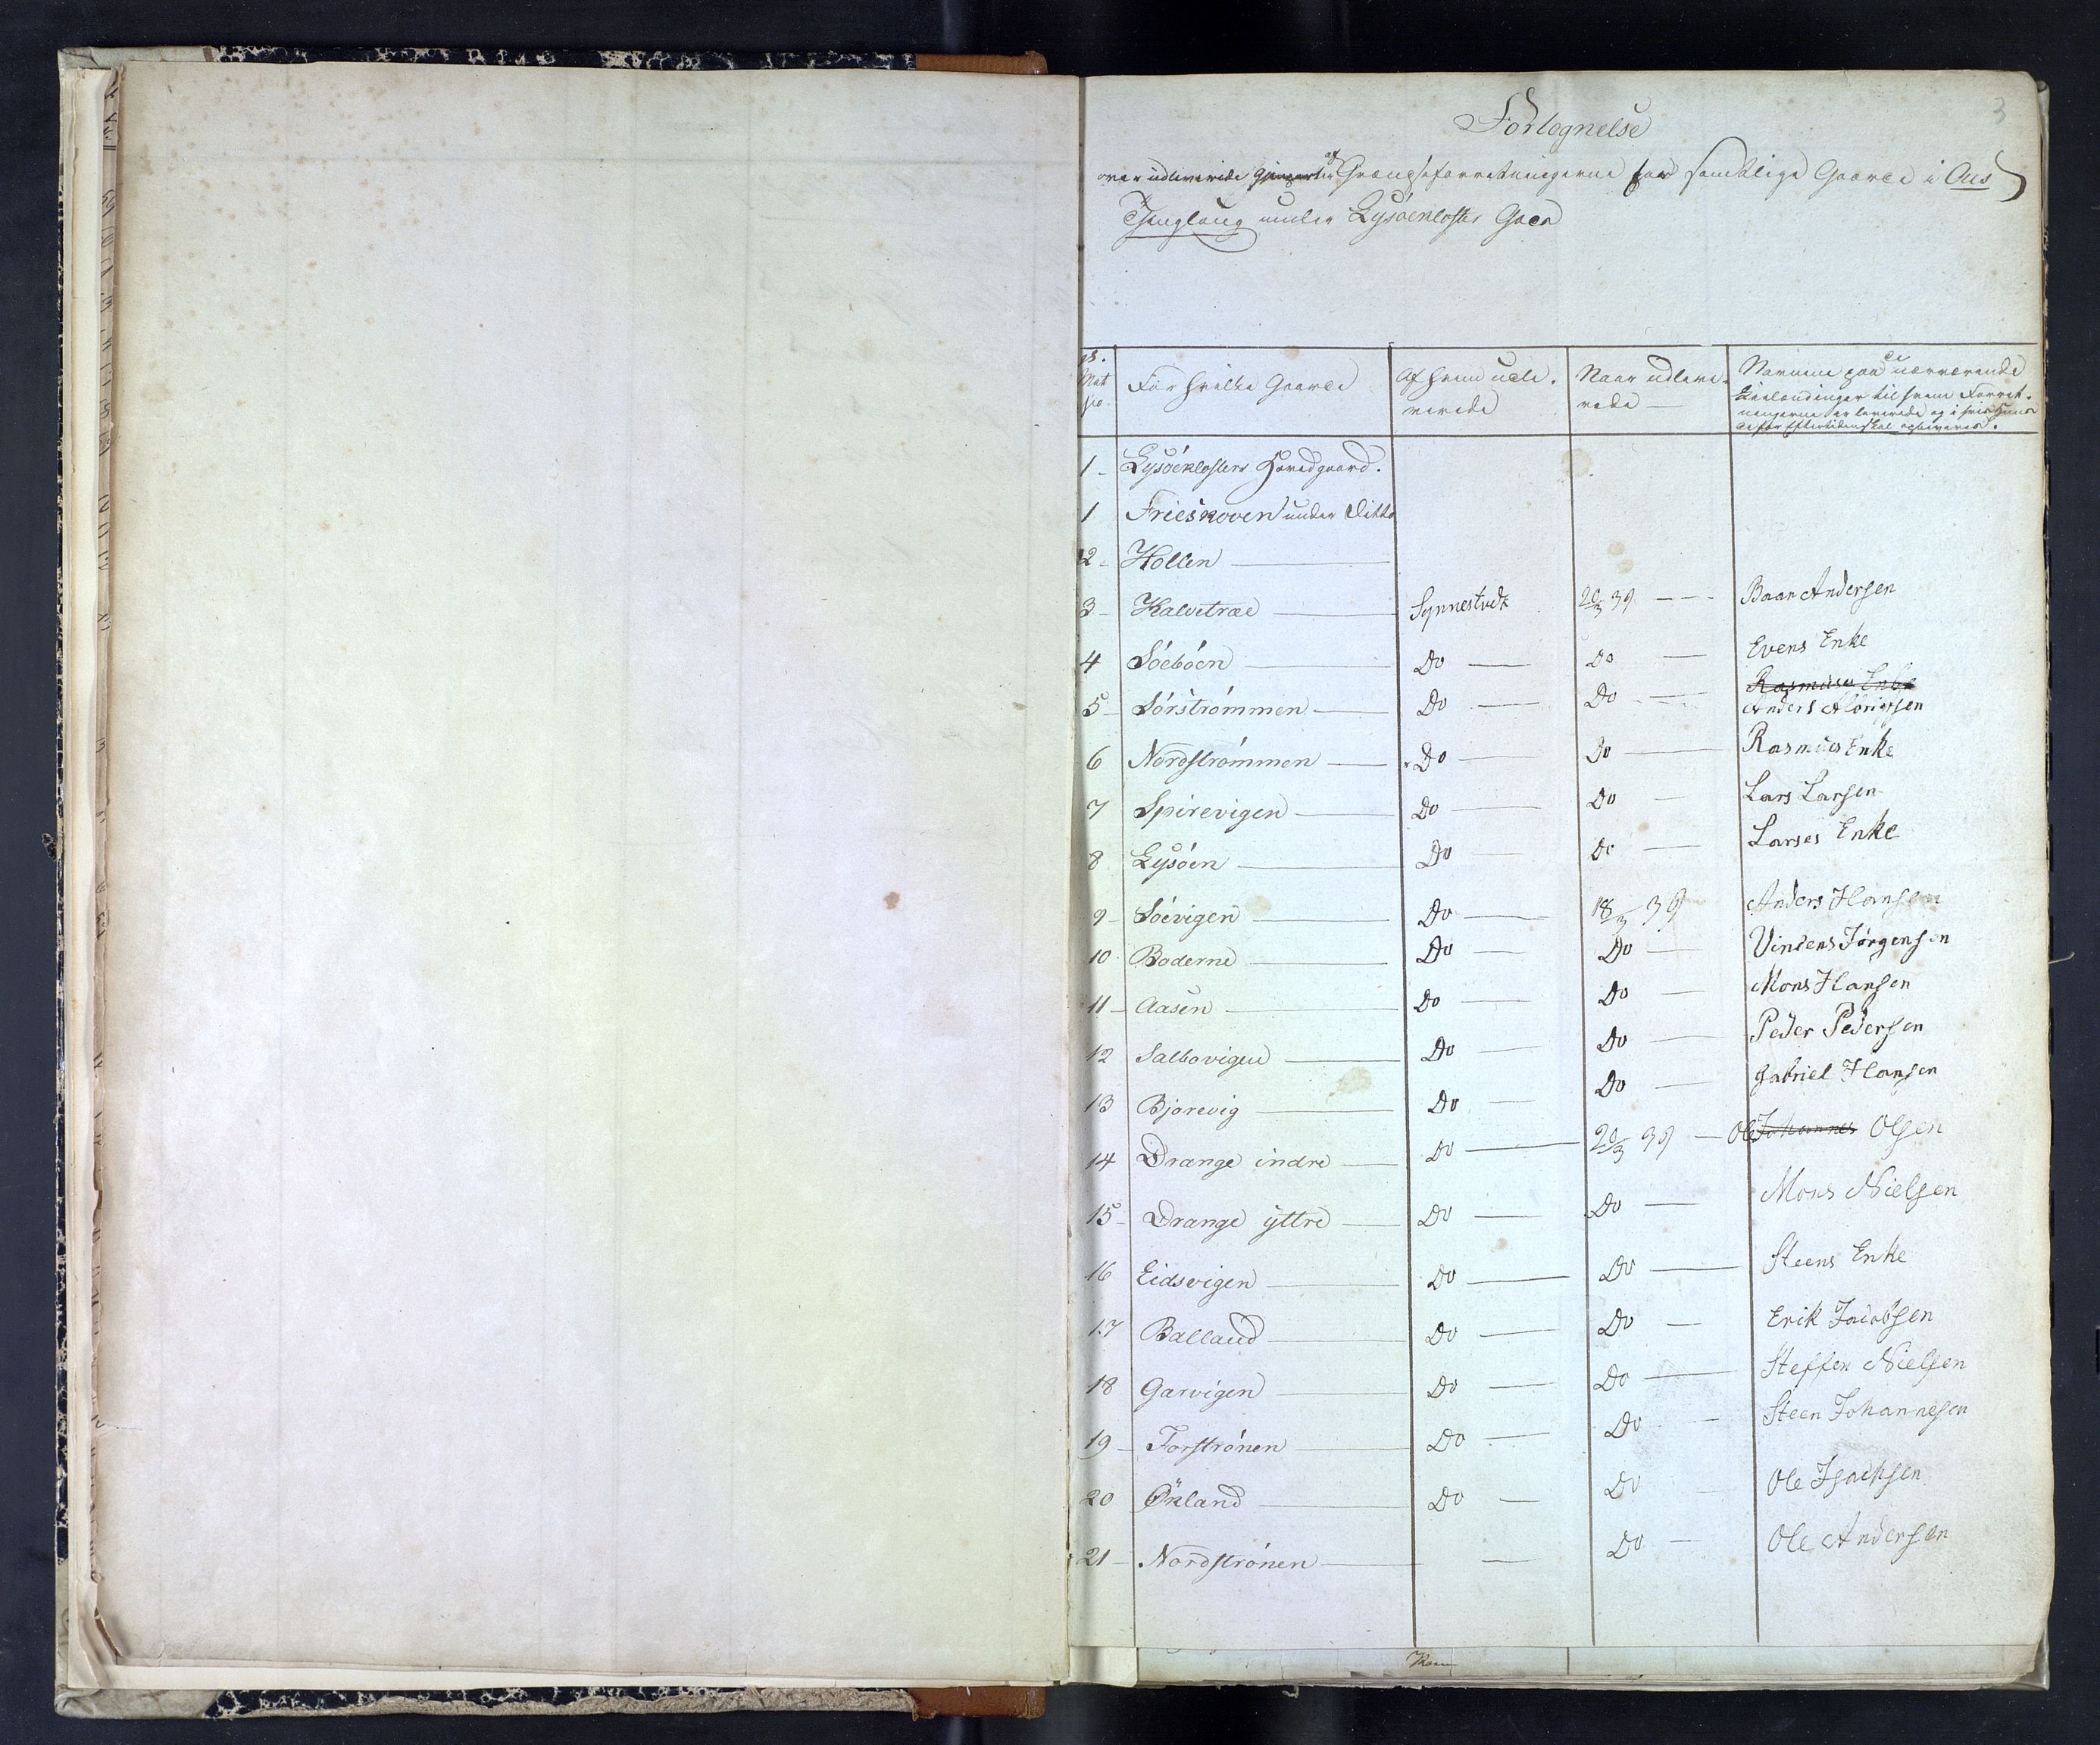 3
Fortegnelse
over udleverede af Grændseforretningerne for samtlige Gaarde i Ous
Tinglaug under Lysøekloster Gods
Mat No.
For hvilke Gaarde
Af hvem udle-
verede
Naar udleve-
rede
Navnene paa de nærværende
til hvem Forret-
ningerne er leverede og i hvis
de for Eftertiden skal opbevares.
1 Lysøeklosters Hovedgaard.
1 Frieskoven under Ditto
2 Hollen
3 Kalvetræe Synnestvedt 20/3 39 Baar Andersen
4 Söebøen Do Do Evens Enke
5 Sörströmmen Do Do Rasmuses Enke
Anders Monssen
6 Nordströmmen Do Do Rasmuses Enke
7 Spirevigen Do Do Lars Larsen
8 Lysøen Do Do Larses Enke
9 Söevigen Do 18/3 39 Anders Hansen
10 Boderne Do Do Vindens Jørgensen
11 Aasen Do Do Mons Hansen
12 Salbovigen Do Do Peder Pedersen
13 Bjørevig Do Do Gabriel Hansen
14 Drange indre Do 20/3 39 Ole Johannes Olsen
15 Drange yttre Do Do Mons Nielsen
16 Eidsvigen Do Do Steens Enke
17 Balland Do Do Erik Jacobsen
18 Garvigen Do Do Steffen Nielsen
19 Forströnen Do Do Steen Johannesen
20 Økland Do Do Ole Isacksen
21 Nordströnen Do Ole Andersen